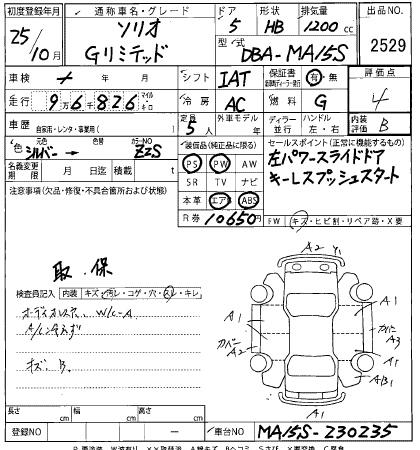 初度登録年月 通称車名・グレード ドア 形状 排気量 出品NO
25/10月 ソリオ 5 HB 1200cc 2529
Gリミテッド 型式 DBA-MA15S
車検 年 月 シフト IAT 保証書 有・無 評価点
走行 9万6千826 マイル キロ 冷房 AC 燃料 G 4
車歴 自家用・レンタ・事業用( ) 定員 5人 外車モデル 年 ディーラー 並行 ハンドル 左・右 内装評価 B
色 元色 シルバー 色替 カラーNO ZZS 装備品(純正品に限る) セールスポイント(正常に機能するもの)
名義変更期限 月 日迄 積載 t PS PW AW 左パワースライドドア
注意事項(欠品・修復・不具合箇所および状態) SR TV ナビ キーレスプッシュスタート
本革 エアB ABS
R 10650円 FW キズ・ヒビ割・リペア跡・X要
取保
検査員記入 内装 キズ・汚レ・コゲ・穴・スレ・キレ
オーディオレス W/C-A
キズ B
A2 Y1
A1 A1
A1 カバー
カバー A3
A2
A1 A1
AB1
A1
長さ cm 幅 cm 高さ cm
登録NO ー 車台NO MA15S-230235